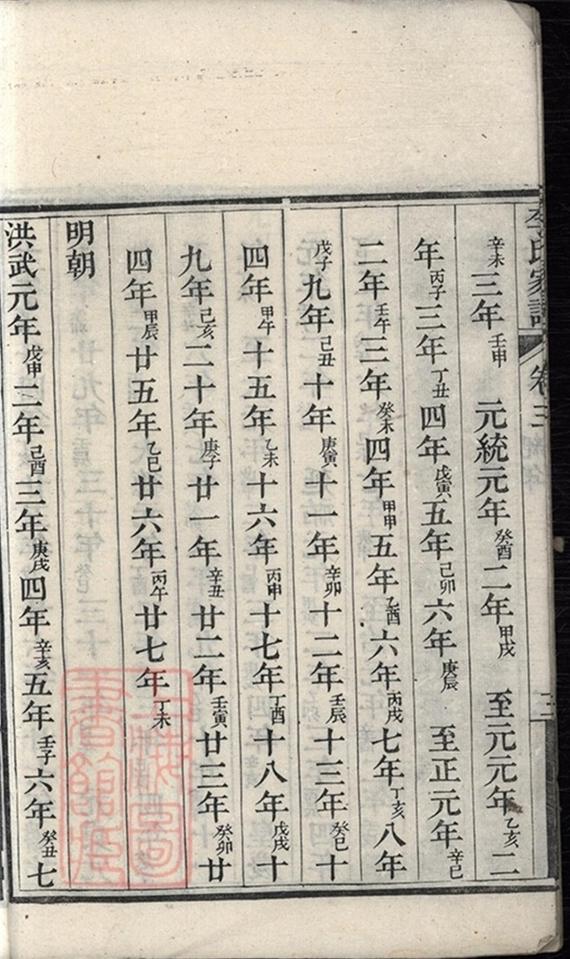 李氏家譜 卷三 三
辛未三年壬申 元統元年癸酉二年甲戌 至元元年乙亥二
年丙子三年丁丑四年戊寅五年己卯六年庚辰 至正元年辛巳
二年壬午三年癸未四年甲申五年乙酉六年丙戌七年丁亥八年
戊子九年己丑十年庚寅十一年辛卯十二年壬辰十三年癸巳十
四年甲午十五年乙未十六年丙申十七年丁酉十八年戊戌十
九年己亥二十年庚子廿一年辛丑廿二年壬寅廿三年癸卯廿
四年甲辰廿五年乙巳廿六年丙午廿七年丁未
明朝
洪武元年戊申二年己酉三年庚戌四年辛亥五年壬子六年癸丑七